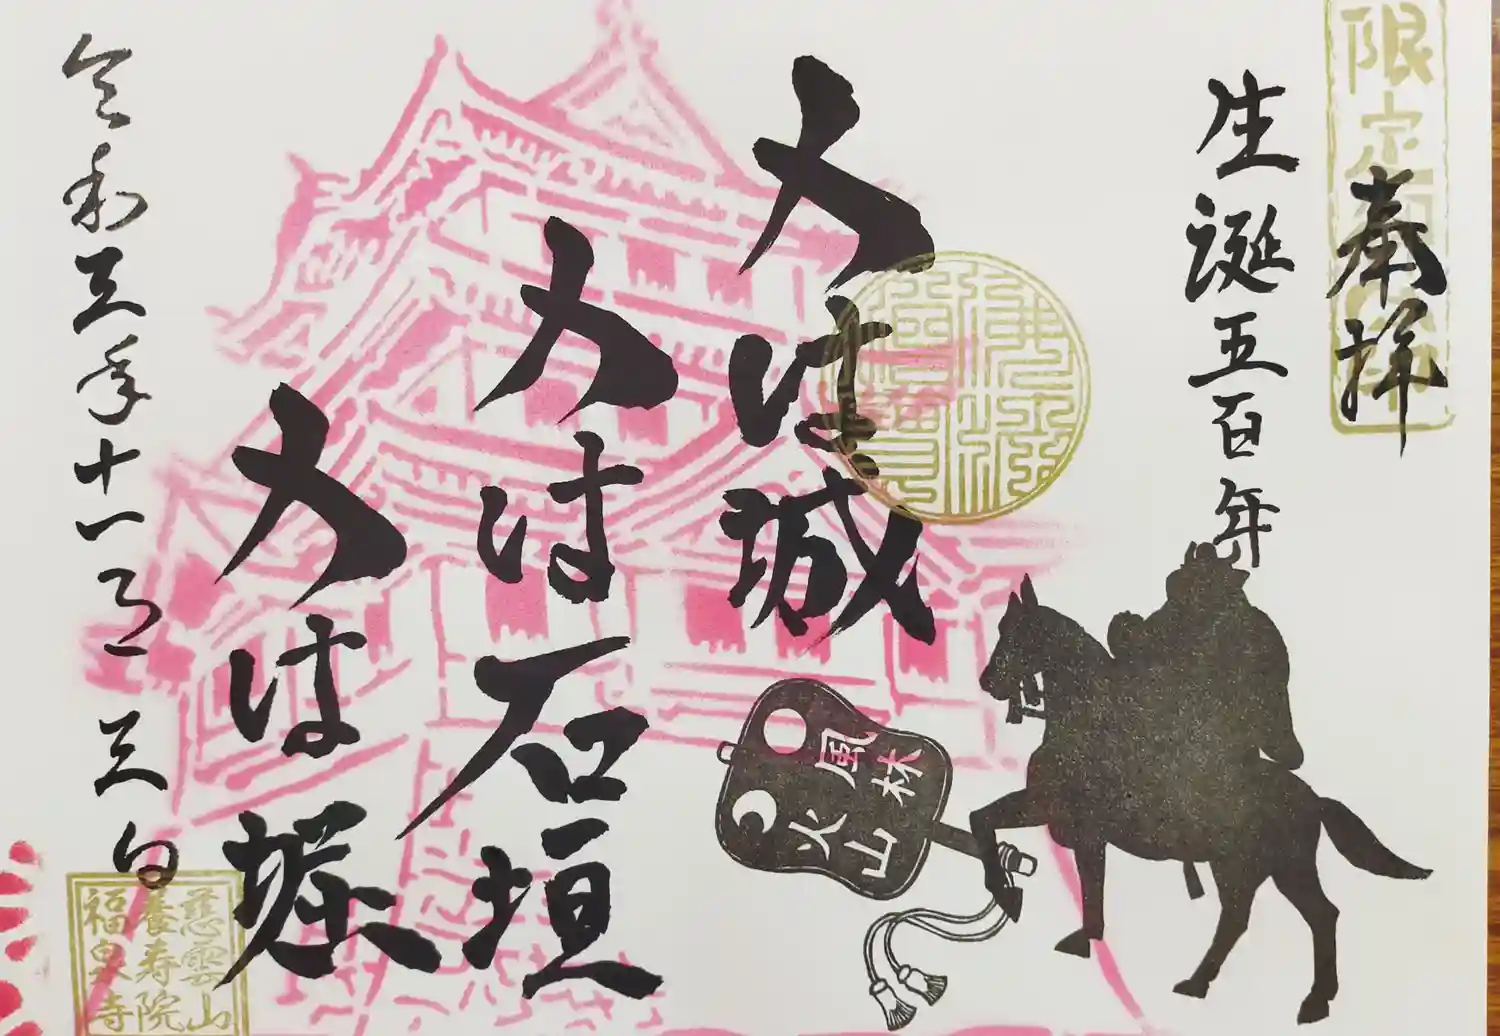 限定
奉拝
生誕五百年
人は城
人は石垣
人は堀
風林
火山
令和三年十一月三日
慈雲山
養寿院
福泉寺